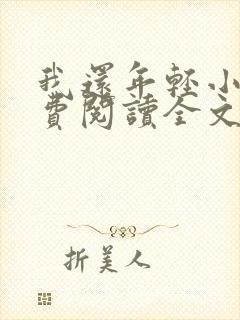 我還年輕小
費閱讀全文
折美人